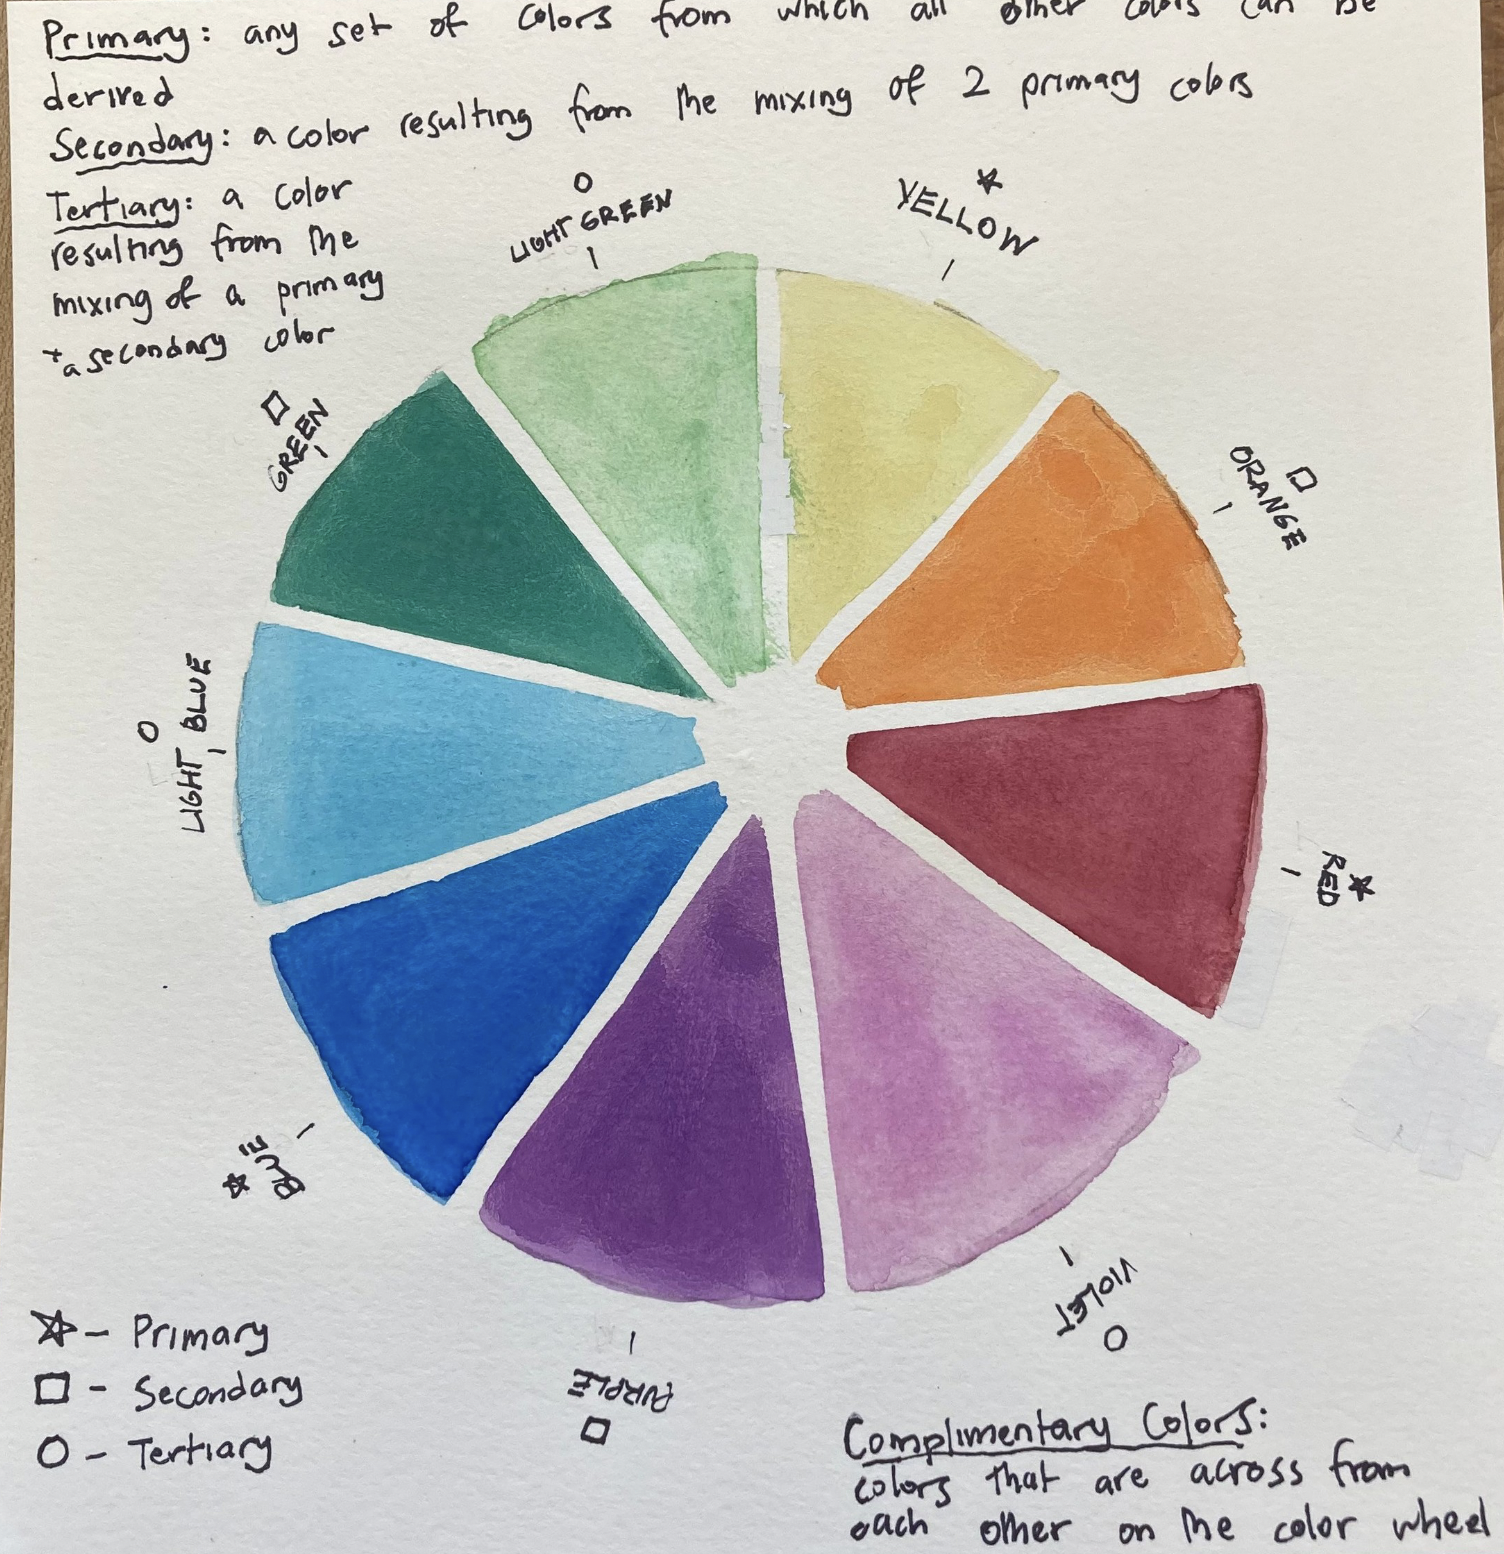 Primary: any set of colors from which all other colors can be
derived
Secondary: a color resulting from the mixing of 2 primary colors
Tertiary: a color
resulting from the
mixing of a primary
+ a secondary color
LIGHT GREEN
YELLOW
GREEN
ORANGE
LIGHT BLUE
RED
BLUE
VIOLET
PURPLE
- Primary
- Secondary
- Tertiary
Complimentary Colors:
colors that are across from
each other on the color wheel